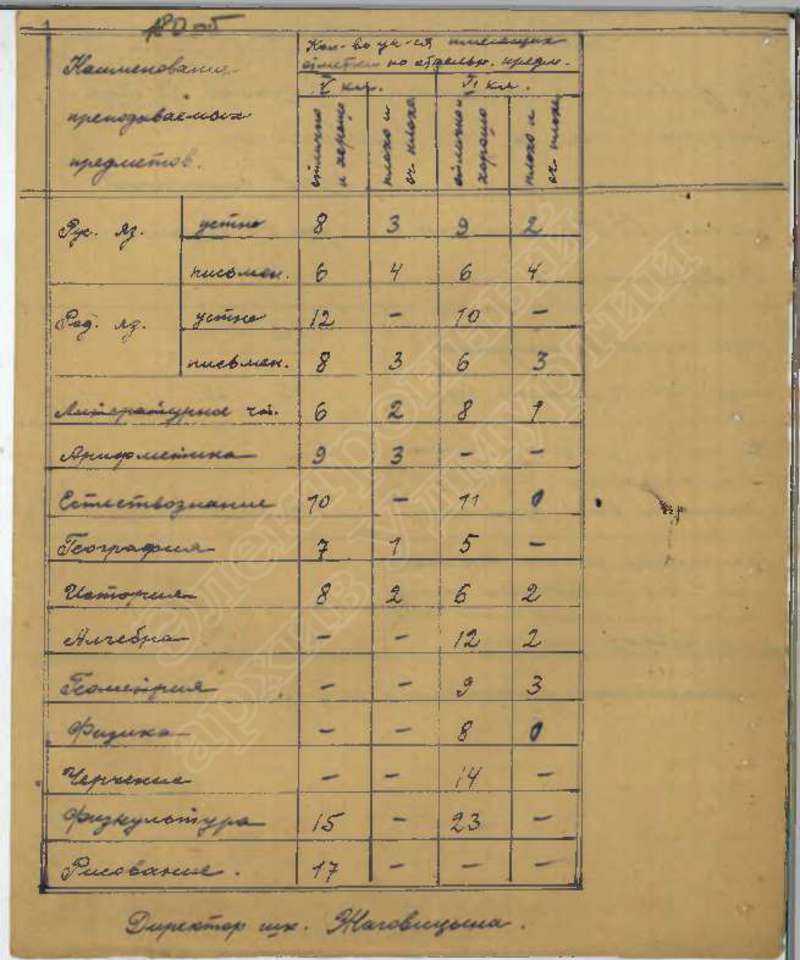 180 об
Кол-во уч-ся имеющих
отметки по отдельн. предм.
Наименование
преподываемых
предметов.
V кл. VI кл.
отлично и хорошо
плохо и оч. плохо
отлично и хорошо
плохо и оч. плохо
Рус. яз. устно 8 3 9 2
письмен. 6 4 6 4
Род. яз. устно 12 – 10 –
письмен. 8 3 6 3
Литературное чт. 6 2 8 1
Арифметика 9 3 – –
Естествознание 10 – 11 0
География 7 1 5 –
История 8 2 6 2
Алгебра – – 12 2
Геометрия – – 9 3
Физика – – 8 0
Черчение – – 14 –
Физкультура 15 – 23 –
Рисование. 17 – – –
Директор шк.